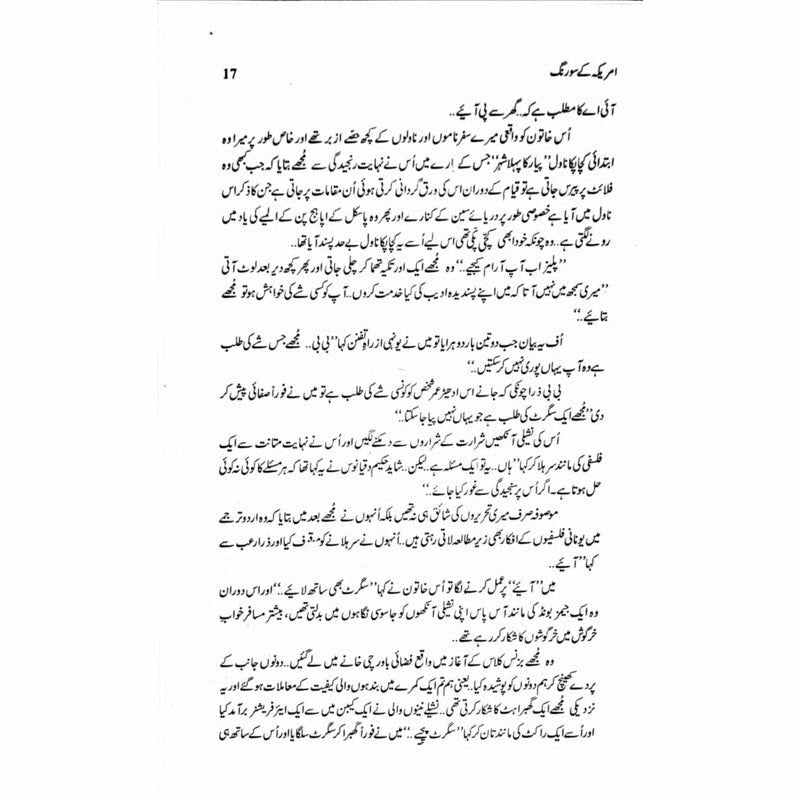 امریکہ کے سو رنگ 17
آئی اے کا مطلب ہے کہ.. گھر سے پی آئیے..
اُس خاتون کو واقعی میرے سفرناموں اور ناولوں کے کچھ حصّے ازبر تھے اور خاص طور پر میرا وہ
ابتدائی کچا پکا ناول ”پیار کا پہلا شہر“ جس کے اِرے میں اُس نے نہایت رنجیدگی سے مُجھے بتایا کہ جب کبھی وہ
فلائٹ پر پیرس جاتی ہے تو قیام کے دوران اس کی ورق گردانی کرتی ہوئی اُن مقامات پر جاتی ہے جن کا ذکر اس
ناول میں آیا ہے خصوصی طور پر دریائے سین کے کنارے اور پھر وہ پاسکل کے اپاہج پن کے المیے کی یاد میں
رونے لگتی ہے.. وہ چونکہ خود ابھی کچّی پکّی تھی اس لیے اُسے یہ کچا پکا ناول بے حد پسند آیا تھا..
”پلیز اب آپ آرام کیجیے..“ وہ مُجھے ایک اور تکیہ تھما کر چلی جاتی اور پھر کچھ دیر بعد لوٹ آتی
”میری سمجھ میں نہیں آتا کہ میں اپنے پسندیدہ ادیب کی کیا خدمت کروں.. آپ کو کسی شے کی خواہش ہو تو مُجھے
بتائیے..“
اُف یہ بیان جب دو تین بار دوہرایا تو میں نے یونہی از راہِ تفنن کہا ”بی بی.. مُجھے جس شے کی طلب
ہے وہ آپ یہاں پوری نہیں کر سکتیں..“
بی بی ذرا چونکی کہ جانے اس ادھیڑ عمر شخص کو کونسی شے کی طلب ہے تو میں نے فوراً صفائی پیش کر
دی ”مُجھے ایک سگرٹ کی طلب ہے جو یہاں نہیں پیا جا سکتا..“
اُس کی نشیلی آنکھیں شرارت کے شراروں سے دمکنے لگیں اور اُس نے نہایت متانت سے ایک
فلسفی کی مانند سر ہلا کر کہا ”ہاں.. یہ تو ایک مسئلہ ہے.. لیکن.. شاید حکیم دقیانوس نے یہ کہا تھا کہ ہر مسئلے کا کوئی نہ کوئی
حل ہوتا ہے۔ اگر اُس پر سنجیدگی سے غور کیا جائے..“
موصوفہ صرف میری تحریروں کی شائق ہی نہ تھیں بلکہ اُنہوں نے مُجھے بعد میں بتایا کہ وہ اردو ترجمے
میں یونانی فلسفیوں کے افکار بھی زیر مطالعہ لاتی رہتی ہیں.. اُنہوں نے سر ہلانے کو موقوف کیا اور ذرا رعب سے
کہا ”آئیے..
میں ”آئیے“ پر عمل کرنے لگا تو اُس خاتون نے کہا ”سگرٹ بھی ساتھ لائیے..“ اور اس دوران
وہ ایک جیمز بونڈ کی مانند آس پاس اپنی نشیلی آنکھوں کو جاسوسی نگاہوں میں بدلتی تھیں، بیشتر مسافر خوابِ
خرگوش میں خرگوشوں کا شکار کر رہے تھے..
وہ مُجھے بزنس کلاس کے آغاز میں واقع فضائی باورچی خانے میں لے گئیں.. دونوں جانب کے
پردے کھینچ کر ہم دونوں کو پوشیدہ کیا.. یعنی ہم تم ایک کمرے میں بند ہوں والی کیفیت کے معاملات ہو گئے اور یہ
نزدیکی مُجھے ایک گھبراہٹ کا شکار کرتی تھی.. نشیلے نینوں والی نے ایک کیبن میں سے ایک ایئر فریشنر برآمد کیا
اور اُسے ایک راکٹ کی مانند تان کر کہا ”سگرٹ پیجیے..“ میں نے فوراً گھبرا کر سگرٹ سلگایا اور اُس کے ساتھ ہی